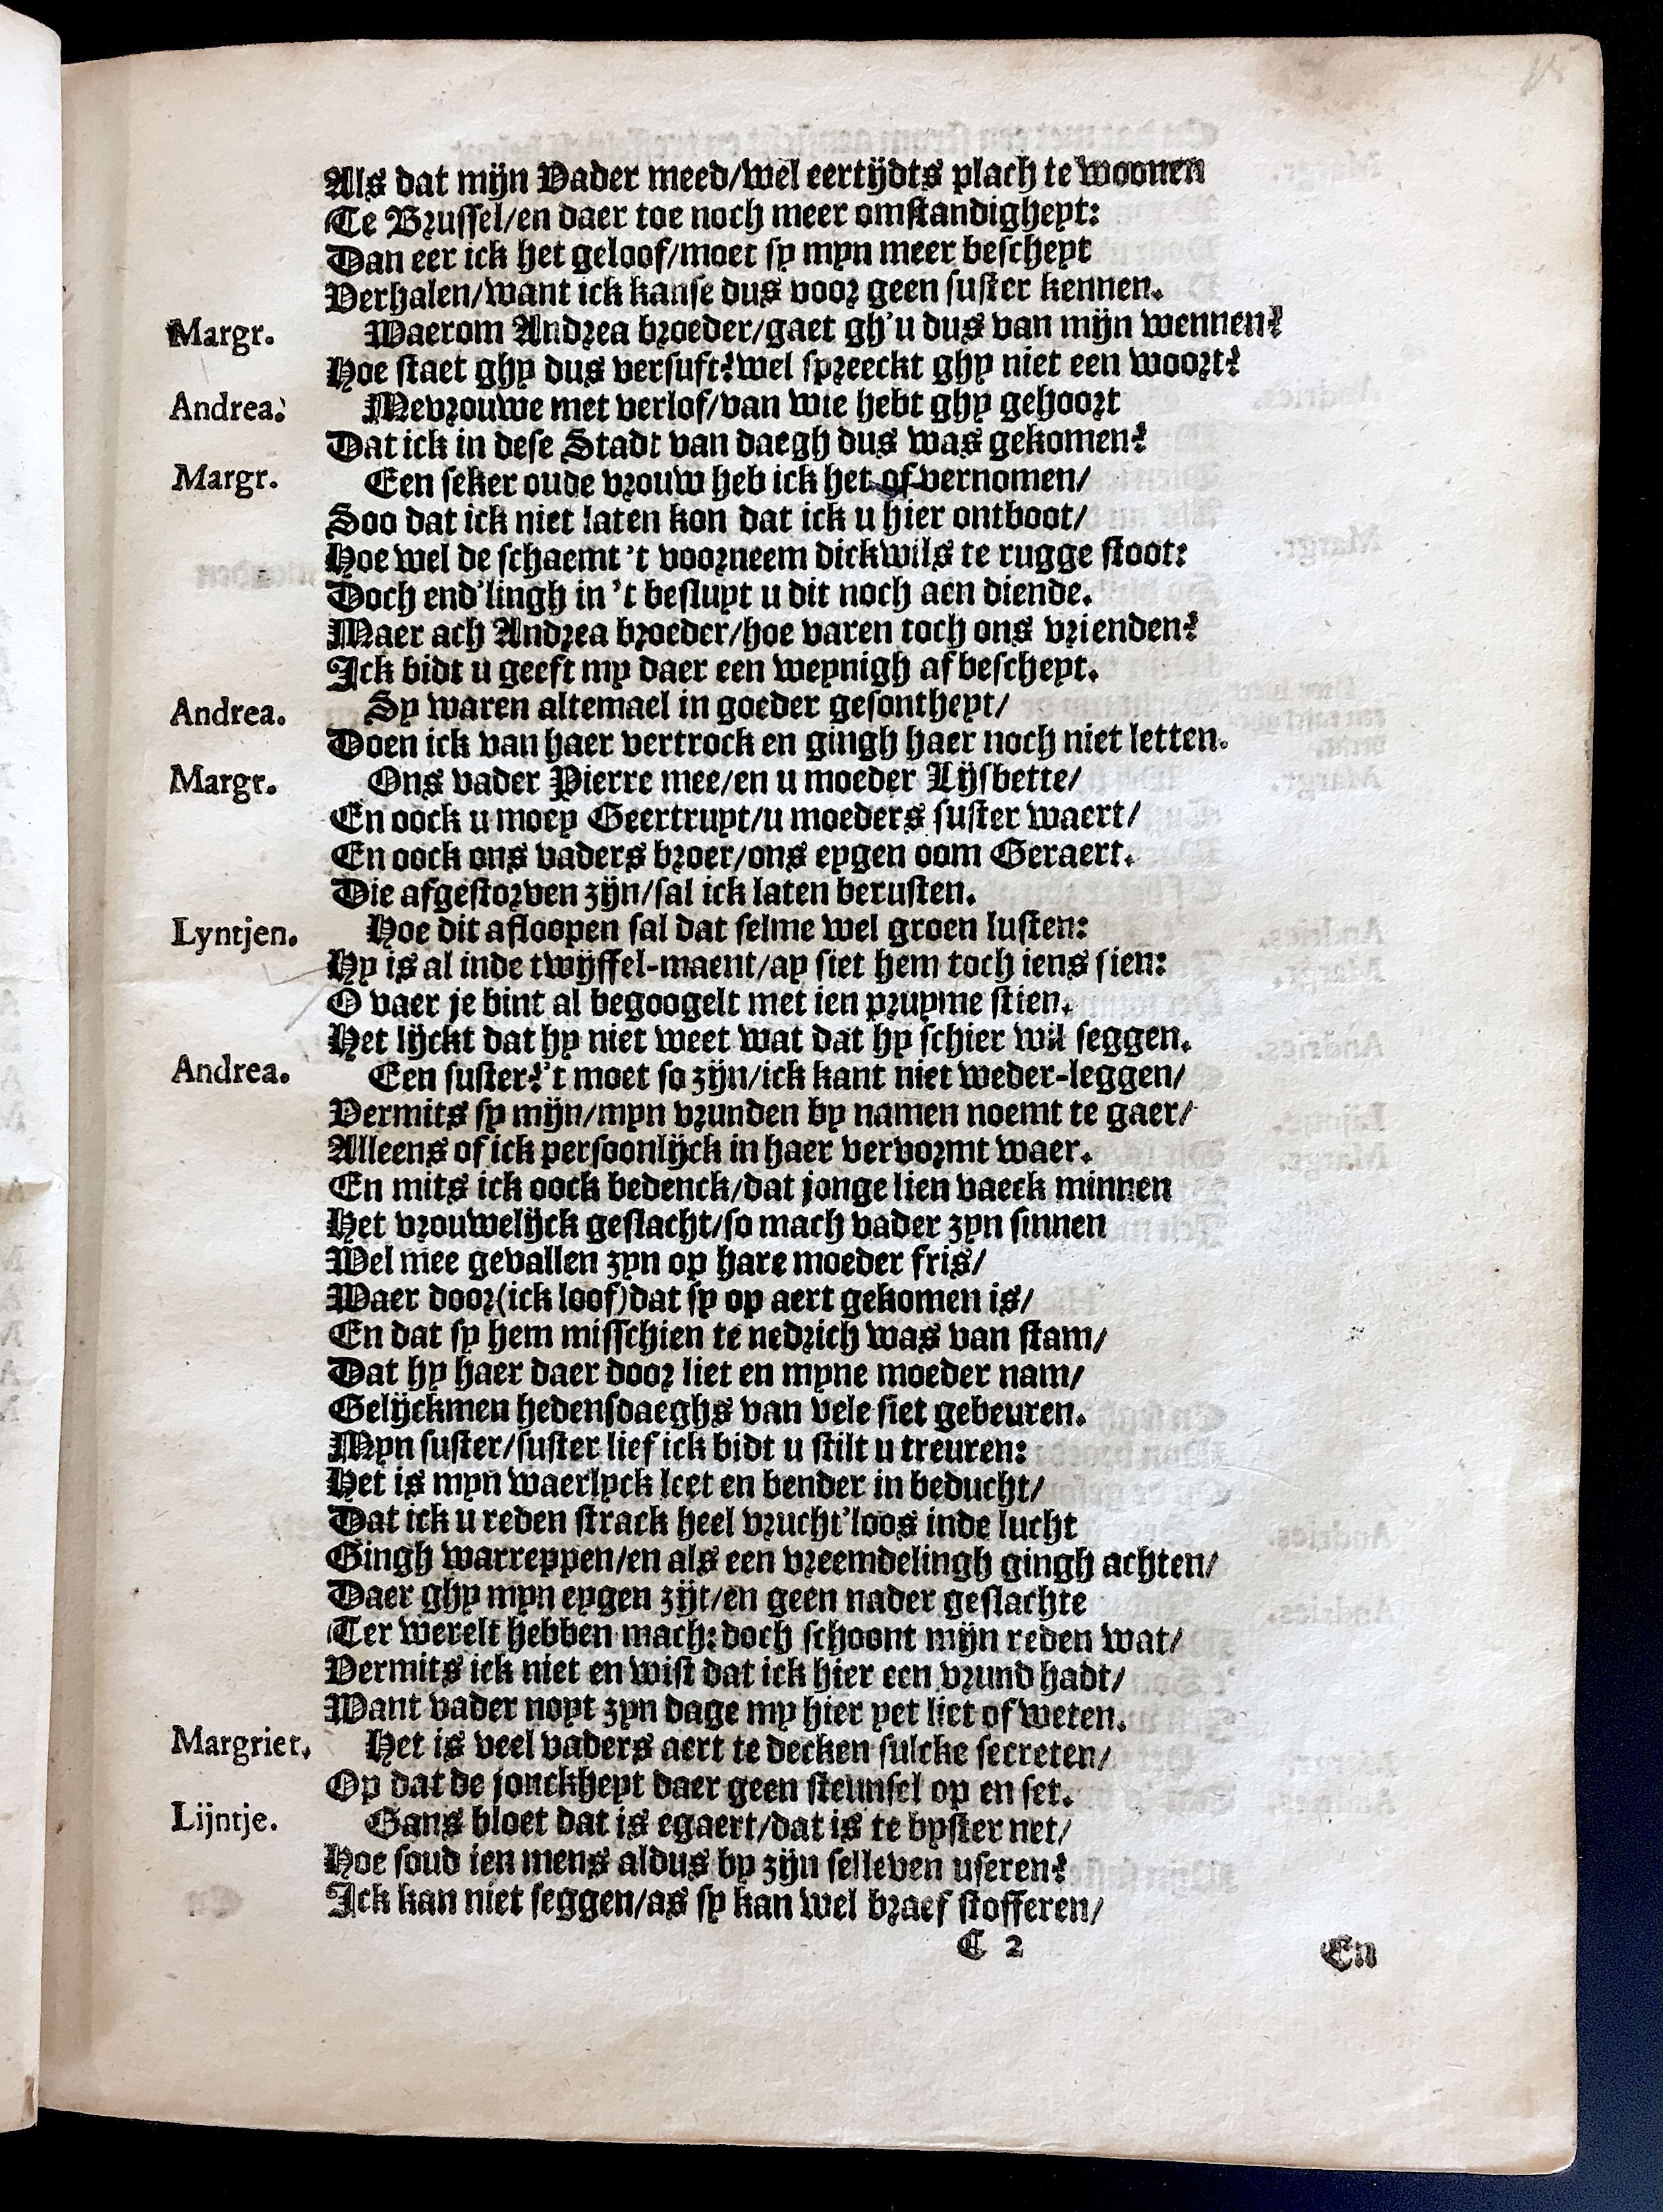 Als dat mijn Vader meed/wel eertijdts plach te woonen
Te Brussel/en daer toe noch meer omstandigheyt:
Dan eer ick het geloof/moet sy myn meer bescheyt
Verhalen/want ick kanse dus voor geen suster kennen.
Margr. Waerom Andrea broeder/gaet gh'u dus van mijn wennen?
Hoe staet ghy dus versuft? wel spreeckt ghy niet een woort?
Andrea. Mevrouwe met verlof/van wie hebt ghy gehoort
Dat ick in dese Stadt van daegh dus was gekomen?
Margr. Een seker oude vrouw heb ick het of vernomen/
Soo dat ick niet laten kon dat ick u hier ontboot/
Hoe wel de schaemt 't voorneem dickwils te rugge stoot:
Doch end'lingh in 't besluyt u dit noch aen diende.
Maer ach Andrea broeder/hoe varen toch ons vrienden?
Ick bidt u geeft my daer een weynigh af bescheyt.
Andrea. Sy waren altemael in goeder gesontheyt/
Doen ick van haer vertrock en gingh haer noch niet letten.
Margr. Ons vader Pierre mee/en u moeder Lijsbette/
En oock u moey Geertruyt/u moeders suster waert/
En oock ons vaders broer/ons eygen oom Geraert.
Die afgestorven zijn/sal ick laten berusten.
Lyntjen. Hoe dit afloopen sal dat selme wel groen lusten:
Hy is al inde twijffel-maent/ay siet hem toch iens sien:
O vaer je bint al begoogelt met ien pruyme stien.
Het lijckt dat hy niet weet wat dat hy schier wil seggen.
Andrea. Een suster? 't moet so zijn/ick kant niet weder-leggen/
Vermits sy mijn/myn vrunden by namen noemt te gaer/
Alleens of ick persoonlijck in haer vervormt waer.
En mits ick oock bedenck/dat jonge lien vaeck minnen
Het vrouwelijck geslacht/so mach vader zyn sinnen
Wel mee gevallen zyn op hare moeder fris/
Waer door(ick loof)dat sy op aert gekomen is/
En dat sy hem misschien te nedrich was van stam/
Dat hy haer daer door liet en myne moeder nam/
Gelijckmen hedensdaeghs van vele siet gebeuren.
Myn suster/suster lief ick bidt u stilt u treuren:
Het is myn waerlyck leet en bender in beducht/
Dat ick u reden strack heel vrucht'loos inde lucht
Gingh warreppen/en als een vreemdelingh gingh achten/
Daer ghy myn eygen zijt/en geen nader geslachte
Ter werelt hebben mach: doch schoont mijn reden wat/
Vermits ick niet en wist dat ick hier een vrund hadt/
Want vader noyt zyn dage my hier yet liet of weten.
Margriet. Het is veel vaders aert te decken sulcke secreten/
Op dat de jonckheyt daer geen steunsel op en set.
Lijntje. Gans bloet dat is egaert/dat is te byster net/
Hoe soud ien mens aldus by zijn selleven useren?
Ick kan niet seggen/as sy kan wel braef stofferen/
C 2 En